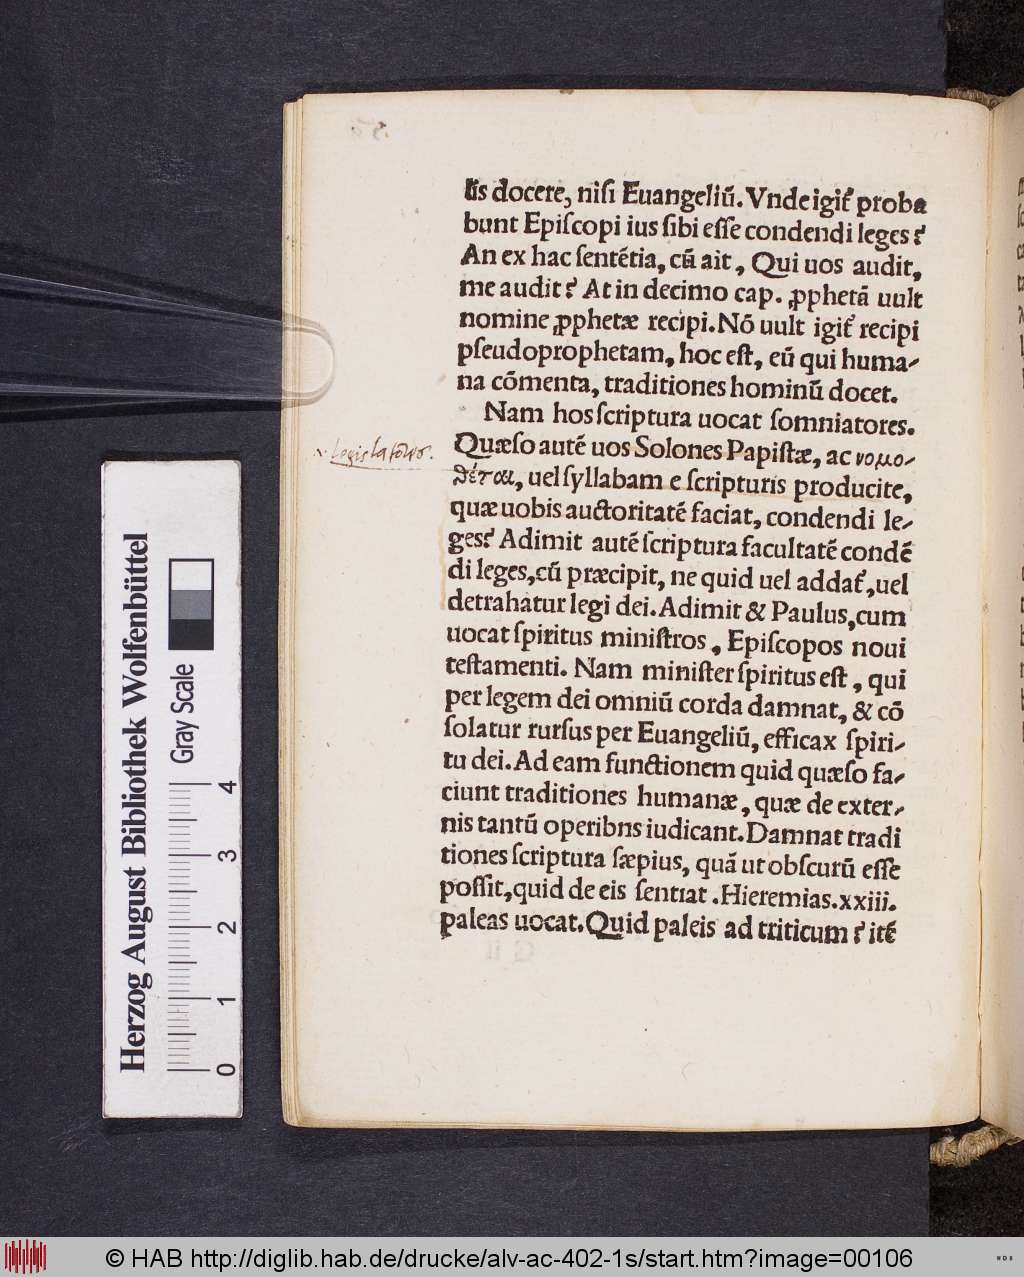 lis docere, niſi Euangeliũ. Vnde igit᷑ proba
bunt Epiſcopi ius ſibi eſſe condendi leges?
An ex hac ſentẽtia, cũ ait, Qui uos audit,
me audit? At in decimo cap. ꝓphetã uult
nomine ꝓphetæ recipi. Nõ uult igit᷑ recipi
pſeudoprophetam, hoc eſt, eũ qui huma-
na cõmenta, traditiones hominũ docet.
Nam hos ſcriptura uocat ſomniatores.
Quæſo autẽ uos Solones Papiſtæ, ac νομο-
θέται, uel ſyllabam e ſcripturis producite,
quæ uobis auctoritatẽ faciat, condendi le-
ges? Adimit autẽ ſcriptura facultatẽ condẽ
di leges, cũ præcipit, ne quid uel addat᷑, uel
detrahatur legi dei. Adimit & Paulus, cum
uocat ſpiritus miniſtros, Epiſcopos noui
teſtamenti. Nam miniſter ſpiritus eſt, qui
per legem dei omniũ corda damnat, & cõ
ſolatur rurſus per Euangeliũ, efficax ſpiri-
tu dei. Ad eam functionem quid quæſo fa-
ciunt traditiones humanæ, quæ de exter-
nis tantũ operibns iudicant. Damnat tradi
tiones ſcriptura ſæpius, quã ut obſcurũ eſſe
poſſit, quid de eis ſentiat. Hieremias. xxiii.
paleas uocat. Quid paleis ad triticum? itẽ
Legislatores.
Herzog August Bibliothek Wolfenbüttel
Gray Scale
0 1 2 3 4
© HAB http://diglib.hab.de/drucke/alv-ac-402-1s/start.htm?image=00106